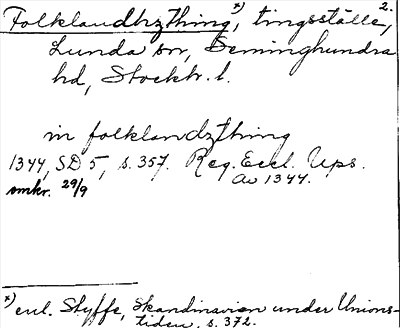 2.
Folklandhzthing *), tingsställe,
Lunda sn, Seminghundra
hd, Stockh. l.
in folklandzthing
1344, SD 5, s. 357. Reg. Eccl. Ups.
omkr. 29/9 av 1344.
*) enl. Styffe, Skandinavien under Unions-
tiden, s. 372.